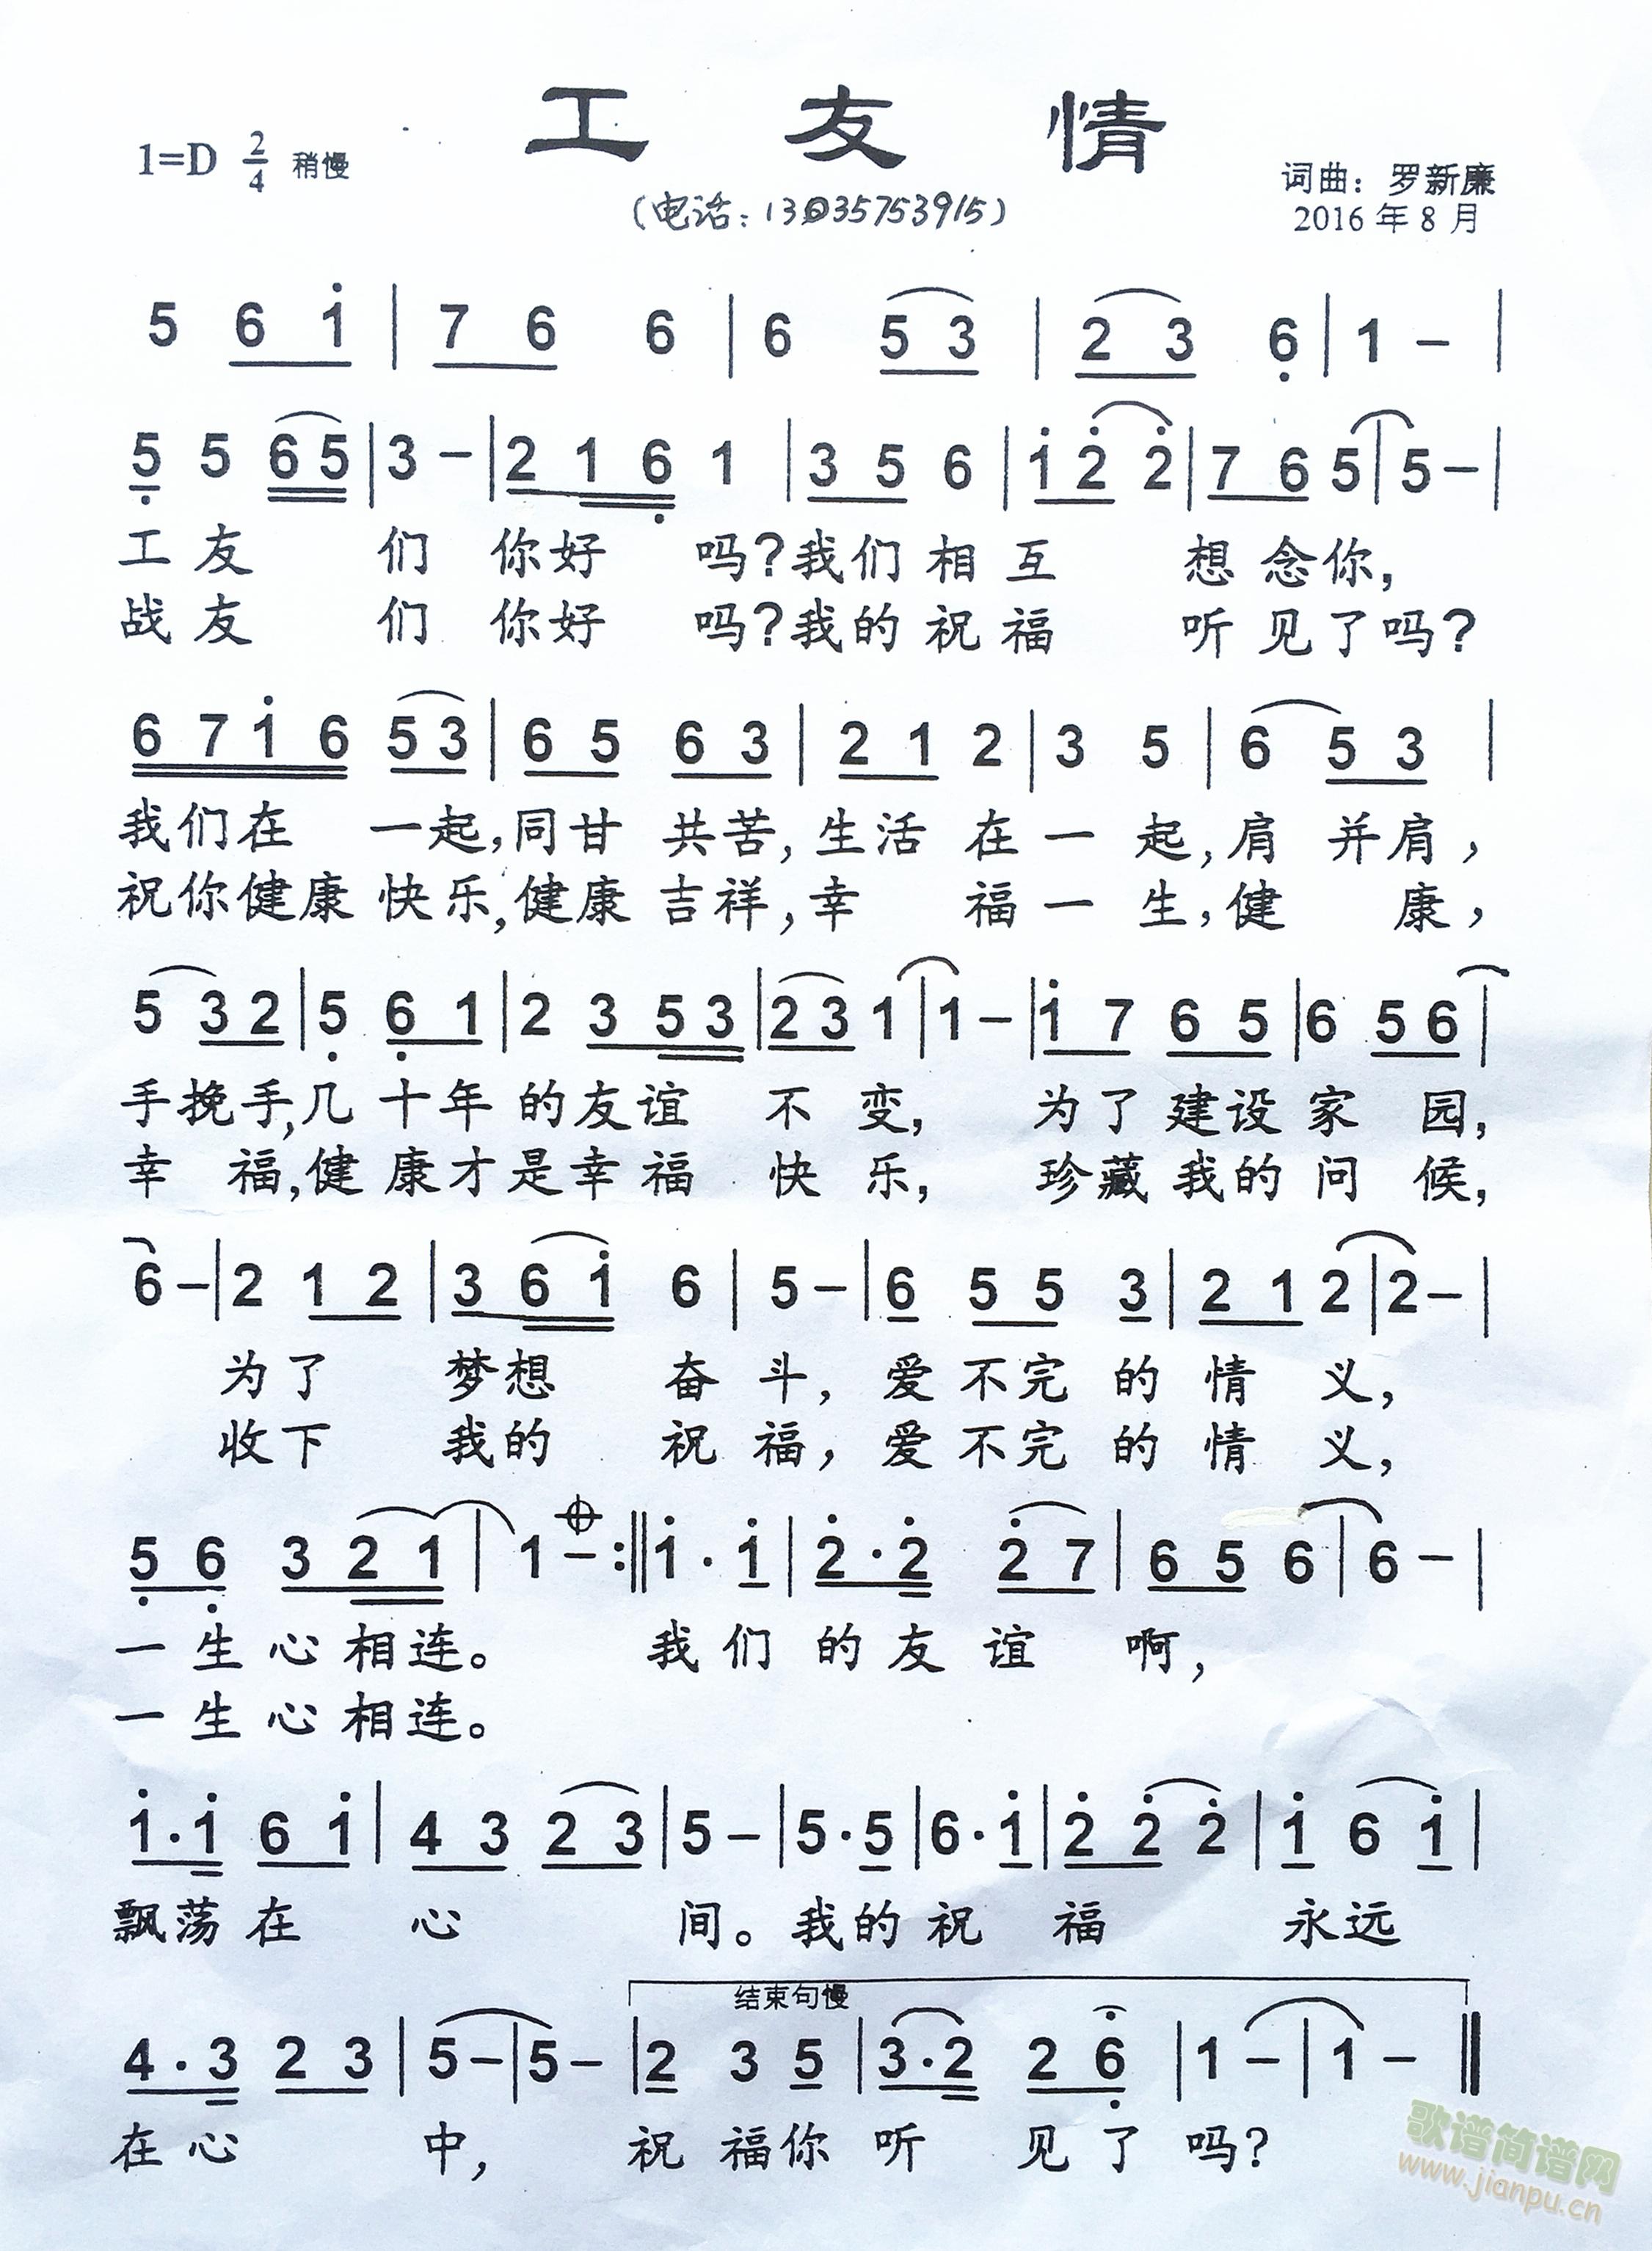 工友情
1=D 2/4 稍慢
词曲：罗新廉
(电话：13035753915)
2016年8月
5 6 1̇ | 7 6 6 | 6 5 3 | 2 3 6̣ | 1 – |
5̣ 5 6 5 | 3 – | 2 1 6̣ 1 | 3 5 6 | 1̇ 2̇ 2̇ | 7 6 5 | 5 – |
工友们你好吗?我们相互想念你,
战友们你好吗?我的祝福听见了吗?
6 7 1̇ 6 5 3 | 6 5 6 3 | 2 1 2 | 3 5 | 6 5 3 |
我们在一起,同甘共苦,生活在一起,肩并肩,
祝你健康快乐,健康吉祥,幸福一生,健康,
5 3 2 | 5̣ 6̣ 1 | 2 3 5 3 | 2 3 1 | 1 – | 1̇ 7 6 5 | 6 5 6 |
手挽手,几十年的友谊不变,为了建设家园,
幸福,健康才是幸福快乐,珍藏我的问候,
6 – | 2 1 2 | 3 6 1̇ 6 | 5 – | 6 5 5 3 | 2 1 2 | 2 – |
为了梦想奋斗,爱不完的情义,
收下我的祝福,爱不完的情义,
5̣ 6̣ 3 2 1 | 1 – :‖ 1̇ · 1̇ | 2̇ · 2̇ 2̇ 7 | 6 5 6 | 6 – |
一生心相连。我们的友谊啊,
一生心相连。
1̇ · 1̇ 6 1̇ | 4 3 2 3 | 5 – | 5 · 5 | 6 · 1̇ | 2̇ 2̇ 2̇ | 1̇ 6 1̇ |
飘荡在心间。我的祝福永远
结束句慢
4 · 3 2 3 | 5 – | 5 – | 2 3 5 | 3 · 2 2 6̣ | 1 – | 1 – ‖
在心中,祝福你听见了吗?
歌谱简谱网
www.jianpu.cn